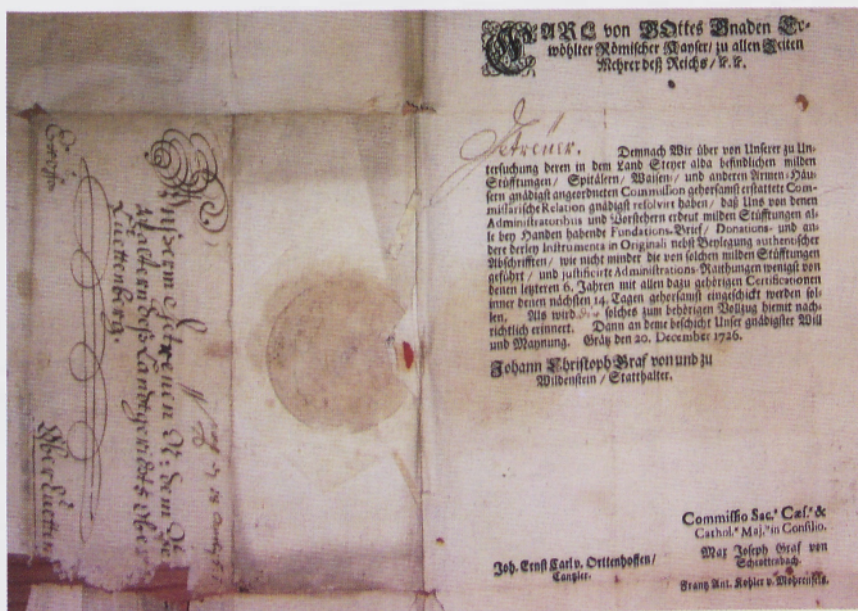 CARL von GOttes Gnaden Er-
wöhlter Römischer Kayser/ zu allen Zeiten
Mehrer deß Reichs / &. &.
Getreüer. Demnach Wir über von Unserer zu Un-
tersuchung deren in dem Land Steyer alda befindlichen milden
Stüfftungen/ Spitälern/ Waisen/ und anderen Armen-Häu-
sern gnädigst angeordneten Commission gehorsamst erstattete Com-
missarische Relation gnädigst resolvirt haben/ daß Uns von denen
Administratoribus und Vorstehern erdeut milden Stüfftungen al-
le bey Handen habende Fundations-Brief/ Donations- und an-
dere derley Instrumenta in Originali nebst Beylegung authentischer
Abschrifften/ wie nicht minder die von solchen milden Stüfftungen
geführt / und justificirte Administrations-Raithungen wenigst von
denen letzteren 6. Jahren mit allen dazu gehörigen Certificationen
inner denen nächsten 14. Tagen gehorsamst eingeschickt werden sol-
len. Als wird solches zum behörigen Vollzug hiemit nach-
richtlich erinnert. Dann an deme beschicht Unser gnädigster Will
und Maynung. Grätz den 20. December 1726.
Johann Christoph Graf von und zu
Wildenstein / Statthalter.
Commissio Sac.ᵃ Cæs.ᵃ &
Cathol.ᵃ Maj.ᵗⁱˢ in Consilio.
Joh. Ernst Carl v. Orttenhoffen/
Cantzler.
Max Joseph Graf von
Schrottenbach.
Frantz Ant. Kobler v. Mohrenfels.
Unserem Getreuen N: dem Ver-
waltern deß Landtgerichts Ober
Luettenberg.
Ober Luetten